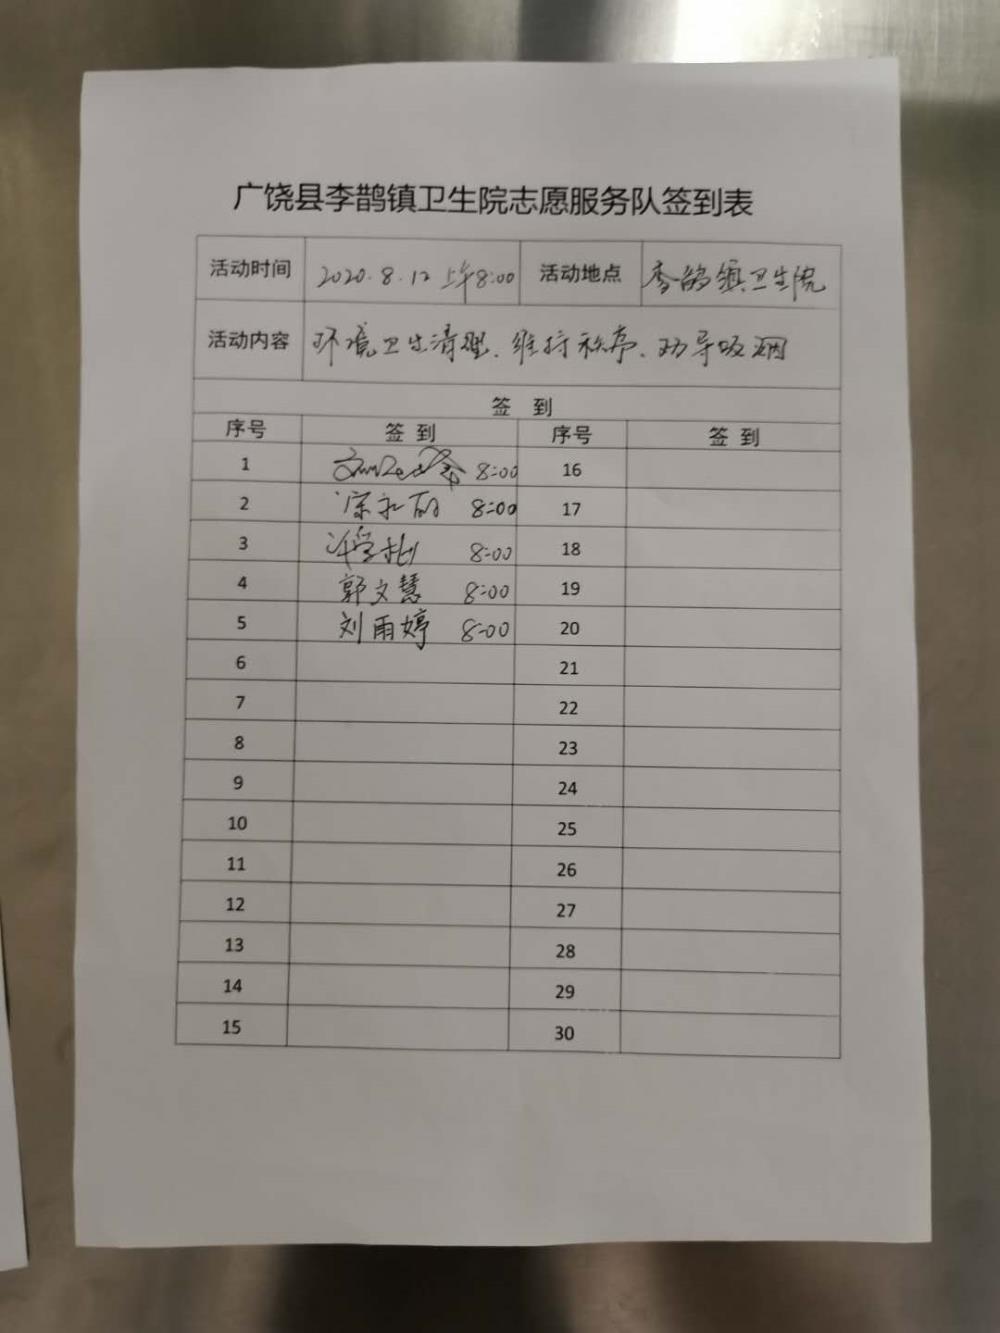 广饶县李鹊镇卫生院志愿服务队签到表
活动时间 2020.8.12 上午8:00 活动地点 李鹊镇卫生院
活动内容 环境卫生清理、维持秩序、劝导吸烟
签 到
序号 签到 序号 签到
1 8:00 16
2 8:00 17
3 8:00 18
4 郭文慧 8:00 19
5 刘雨婷 8:00 20
6 21
7 22
8 23
9 24
10 25
11 26
12 27
13 28
14 29
15 30